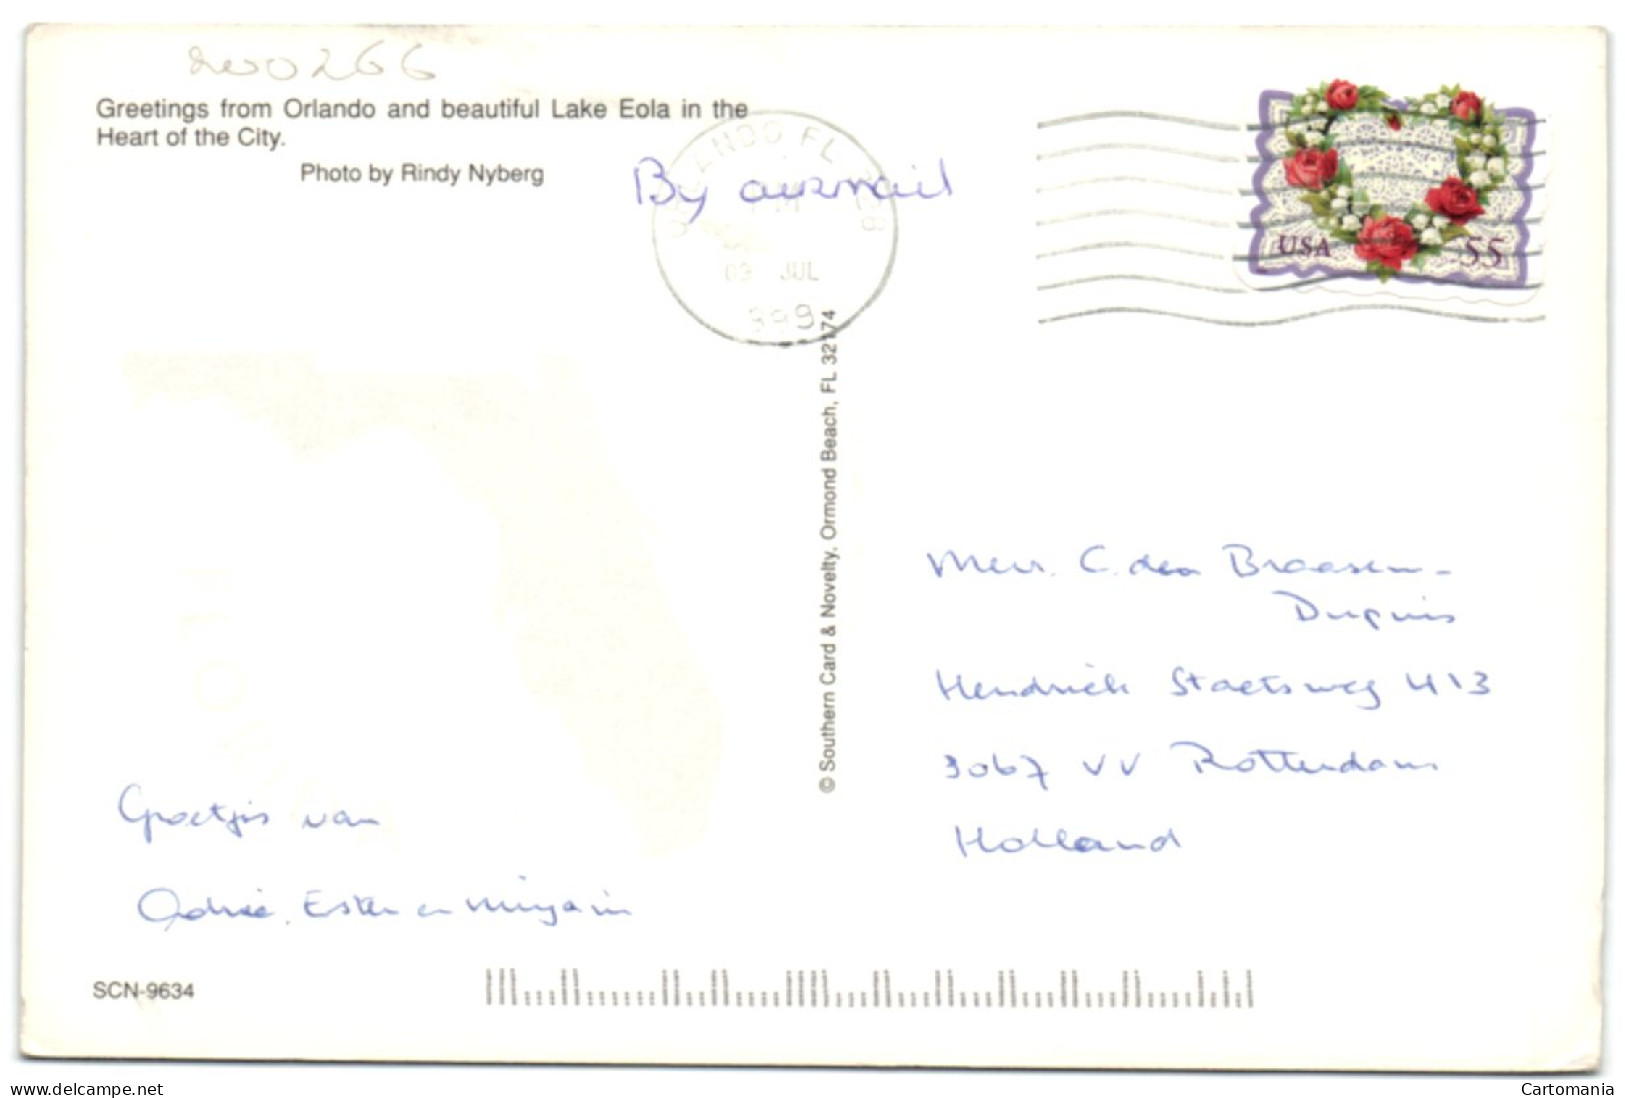 200266
Greetings from Orlando and beautiful Lake Eola in the
Heart of the City.
Photo by Rindy Nyberg
By airmail
ORLANDO FL 328
PM
09 JUL
1999
USA 55
© Southern Card & Novelty, Ormond Beach, FL 32174
FLORIDA
Mevr. C. den Braasem-
Dupuis
Hendrick Staetsweg 413
3067 VV Rotterdam
Holland
Groetjes van
Adrie, Ester en Mirjam
SCN-9634
www.delcampe.net
Cartomania